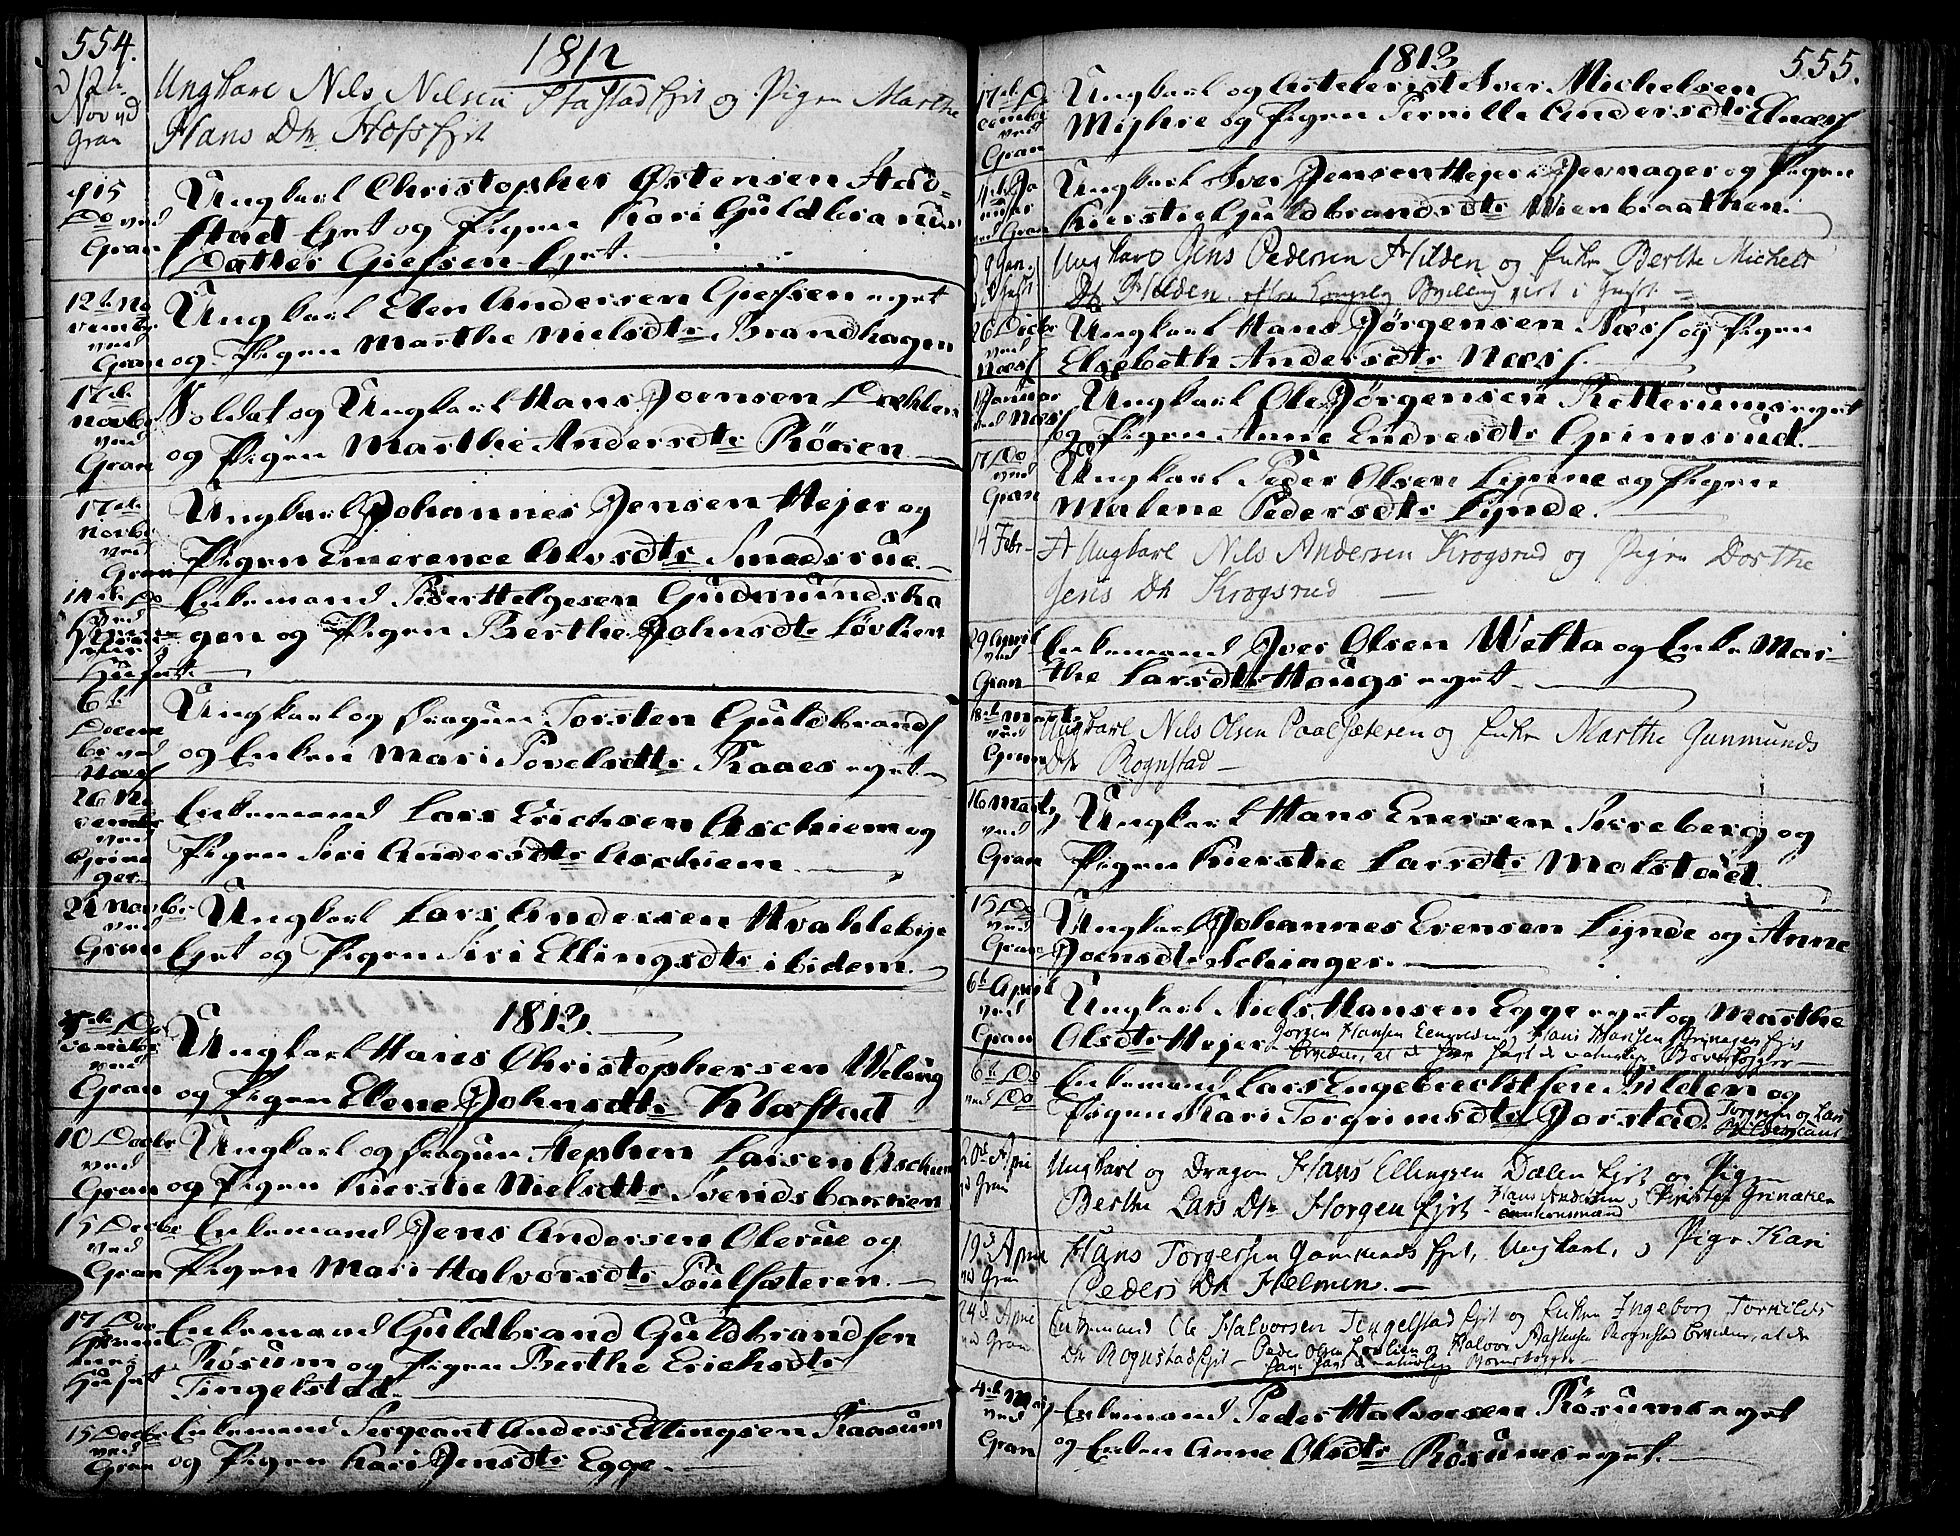 554.
1812
d 12te Nov ved Gran
Ungkarl Nils Nilsen Stastad Ejet og Pigen Marthe
Hans Dtr Hofs Ejet
15 Do ved Gran
Ungkarl Christopher Østensen Stad-
stad Eyet og Pigen Kari Guldbrands
Datter Giefsen Eyet.
12te November ved Gran
Ungkarl Elen Andersen Giefsen eyet
og Pigen Marthe Nielsdtr Brandhagen
17de Novbr ved Gran
Soldat og Ungkarl Hans Joensen Dæhlen
og Pigen Marthe Andersdtr Röken
17de Novbr ved Gran
Ungkarl Johannes Jensen Hejer og
Pigen Emerence Alvsdtr Smedsrue.
Enkemand Peder Helgesen Gudmundsha
gen og Pigen Berthe Johnsdtr Løvlien
6te Decembr ved Næss
Ungkarl og Dragun Torsten Guldbrands
og Enken Mari Povelsdtr Raaes eyet
26 November ved Grinager
Enkemand Lars Erichsen Aschiem og
Pigen Siri Andersdtr Aschiem
24 Novbr ved Gran
Ungkarl Lars Andersen Hvahlebye
Eyet og Pigen Siri Ellingsdtr ibidem.
1813.
December ved Gran
Ungkarl Hans Christophersen Weling
og Pigen Elene Johnsdtr Klæstad
10 Decbr ved Gran
Ungkarl og Dragun Stephen Larsen Aschiem
og Pigen Kierstie Nielsdtr Svendsbachen
15 Decbr ved Gran
Enkemand Jens Andersen Olerue og
Pigen Mari Halvorsdtr Poulsæteren.
17 Dec hiemme i Huset
Enkemand Guldbrand Guldbrandsen
Røsum og Pigen Berthe Erichsdtr
Tingelstad.
15 Decbr ved Gran
Enkemand Sergeant Anders Ellingsen Raasum
og Pigen Kari Jensdtr Egge.
1813
555.
17de December ved Gran
Ungkarl og Artellerist Iver Michelsen
Mishre og Pigen Pernille Andersdtr
4de Januar ved Gran
Ungkarl Iver Jensen Hejer i Jevnager og Pigen
Kierstie Guldbrandsdtr Wienbraathen.
d 9 Jan.
Ungkarl Jens Pedersen Hilden og Enke Berthe Michels
Dtr Hilden, efter Kongelig Bevilling viet i Huset
26 Decbr ved Næss
Ungkarl Hans Jörgensen Næss og Pigen
Elsebeth Andersdtr Næss.
Januar ved Næss
Ungkarl Ole Jörgensen Retterums eyet
og Pigen Anne Endresdtr Grimsrud.
17 Do ved Gran
Ungkarl Peder Olsen Lynne og Pigen
Malene Pedersdtr Lynde.
14 Febr
Ungkarl Nils Andersen Krogsrud og Pigen Dorthe
Jens Dtr Krogsrud
29 April ved Gran
Enkemand Iver Olsen Wetta og Enke Mar-
the Larsdtr Hougs eyet
18de Marts ved Gran
Ungkarl Nils Olsen Paalsæteren og Enke Marthe Gunmunds
Dtr Rognstad
16 Marts ved Gran
Ungkarl Hans Enersen Sireberg og
Pigen Kierstie Larsdtr Molstad.
15 Do ved Gran
Ungkarl Johannes Evensen Lynde og Anne
Joensdtr Achinger.
6te April ved Gran
Ungkarl Niels Hansen Egge eyet og Marthe
Olsdtr Hejer Jørgen Hansen , Hans Hansen Grinagen Ejet
Beviduer, at de have havt de naturlige Børnekopper
6te Do ved Do
Enkemand Lars Engebrechtsen Bilden og
Pigen Mari Torgrimsdtr Jorstad. Torgrim og Lars
20de April ved Gran
Ungkarl og Dragon Hans Ellingsen Dælen Ejet og Pigen
Berthe Lars Dtr Horgen Ejet Hans Andersen , Christen Grinaken
19de April ved Gran
Hans Torgersen Ejet, Ungkarl, og Pige Kari
Peders Dtr Helmen.
24d April ved Gran
Enkemand Ole Halvorsen Tingelstad Ejet og Enken Ingeborg Torkilds
Dtr Rognstad Ejet Peder Olsen og Halvor Rognstad bevidner, at de
have havt de naturlige Børnekopper
4de Maj ved Gran
Enkemand Peder Halvorsen Røsums eyet
og Enken Anne Olsdtr Røsums eyet.